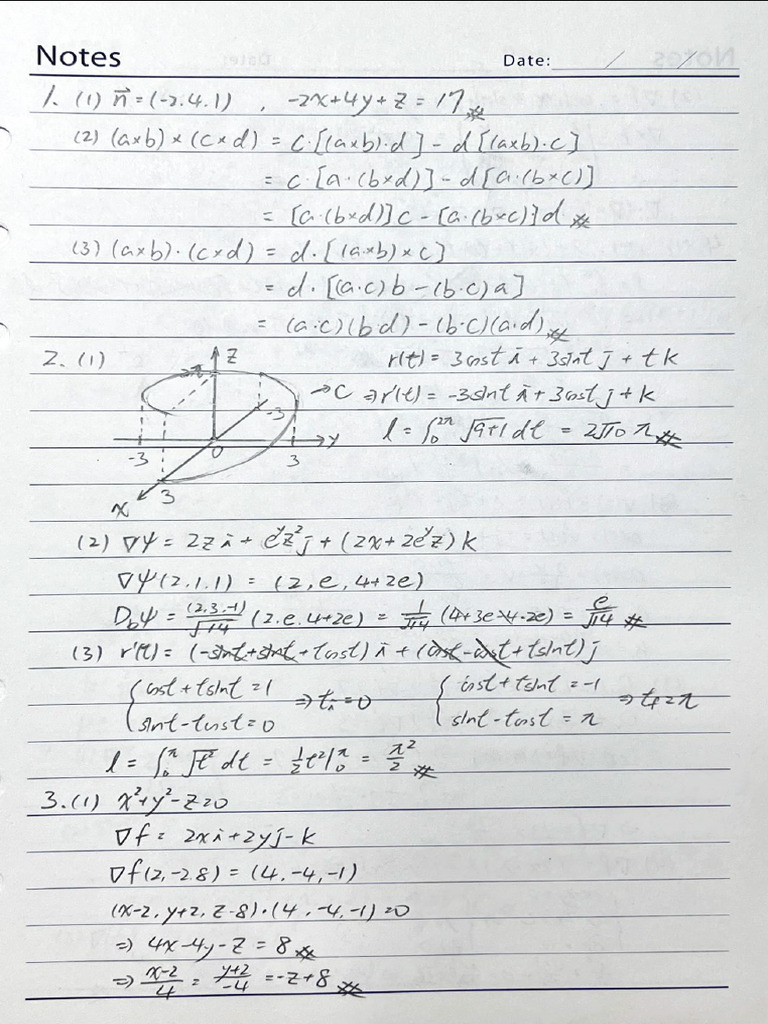 Notes Date: / /
1. (1) n⃗ = (-2.4.1) , -2x+4y+z = 17
(2) (a×b)×(c×d) = c·[(a×b)·d] - d[(a×b)·c]
= c·[a·(b×d)] - d[a·(b×c)]
= [a·(b×d)]c - [a·(b×c)]d
(3) (a×b)·(c×d) = d·[(a×b)×c]
= d·[(a·c)b - (b·c)a]
= (a·c)(b·d) - (b·c)(a·d)
2. (1) z r(t) = 3cost i + 3sint j + t k
2π → C ⇒ r'(t) = -3sint i + 3cost j + k
-3 -3 0 3 y l = ∫₀^2π √(9+1) dt = 2√10 π
x 3
(2) ∇ψ = 2z i + e^y z² j + (2x+2e^y z) k
∇ψ(2,1,1) = (2, e, 4+2e)
D_b ψ = (2,3,-1)/√14 (2,e,4+2e) = 1/√14 (4+3e-4-2e) = e/√14
(3) r'(t) = (-sint+sint+tcost) i + (cost-cost+tsint) j
{cost+tsint=1 ⇒ tᵢ=0 {cost+tsint=-1 ⇒ t_f=π
sint-tcost=0 sint-tcost=π
l = ∫₀^π √t² dt = ½t²|₀^π = π²/2
3. (1) x²+y²-z=0
∇f = 2x i + 2y j - k
∇f(2,-2.8) = (4,-4,-1)
(x-2, y+2, z-8)·(4,-4,-1)=0
⇒ 4x-4y-z = 8
⇒ (x-2)/4 = (y+2)/-4 = -z+8